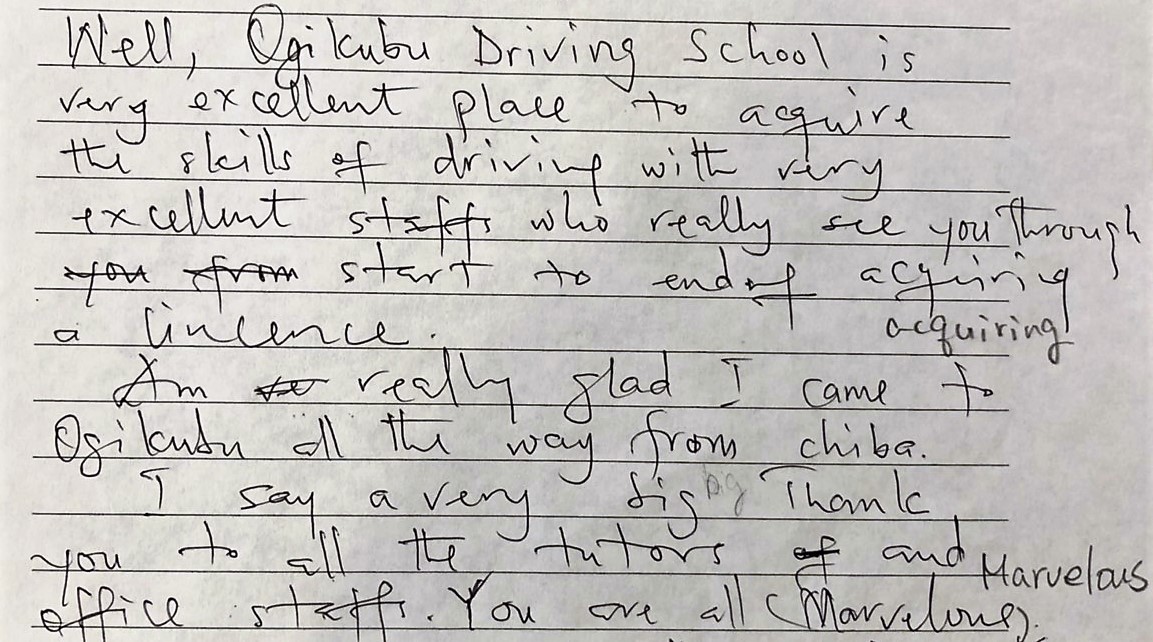 Well, Ogikubu Driving School is
very excellent place to acquire
the skills of driving with very
excellent staffs who really see you through
you from start to end of acquiring
acquiring
a lincence.
Am really glad I came to
Ogikubu all the way from chiba.
I say a very big big Thank
you to all the tutors of and
Marvelous
office staffs. You are all (Marvelous).